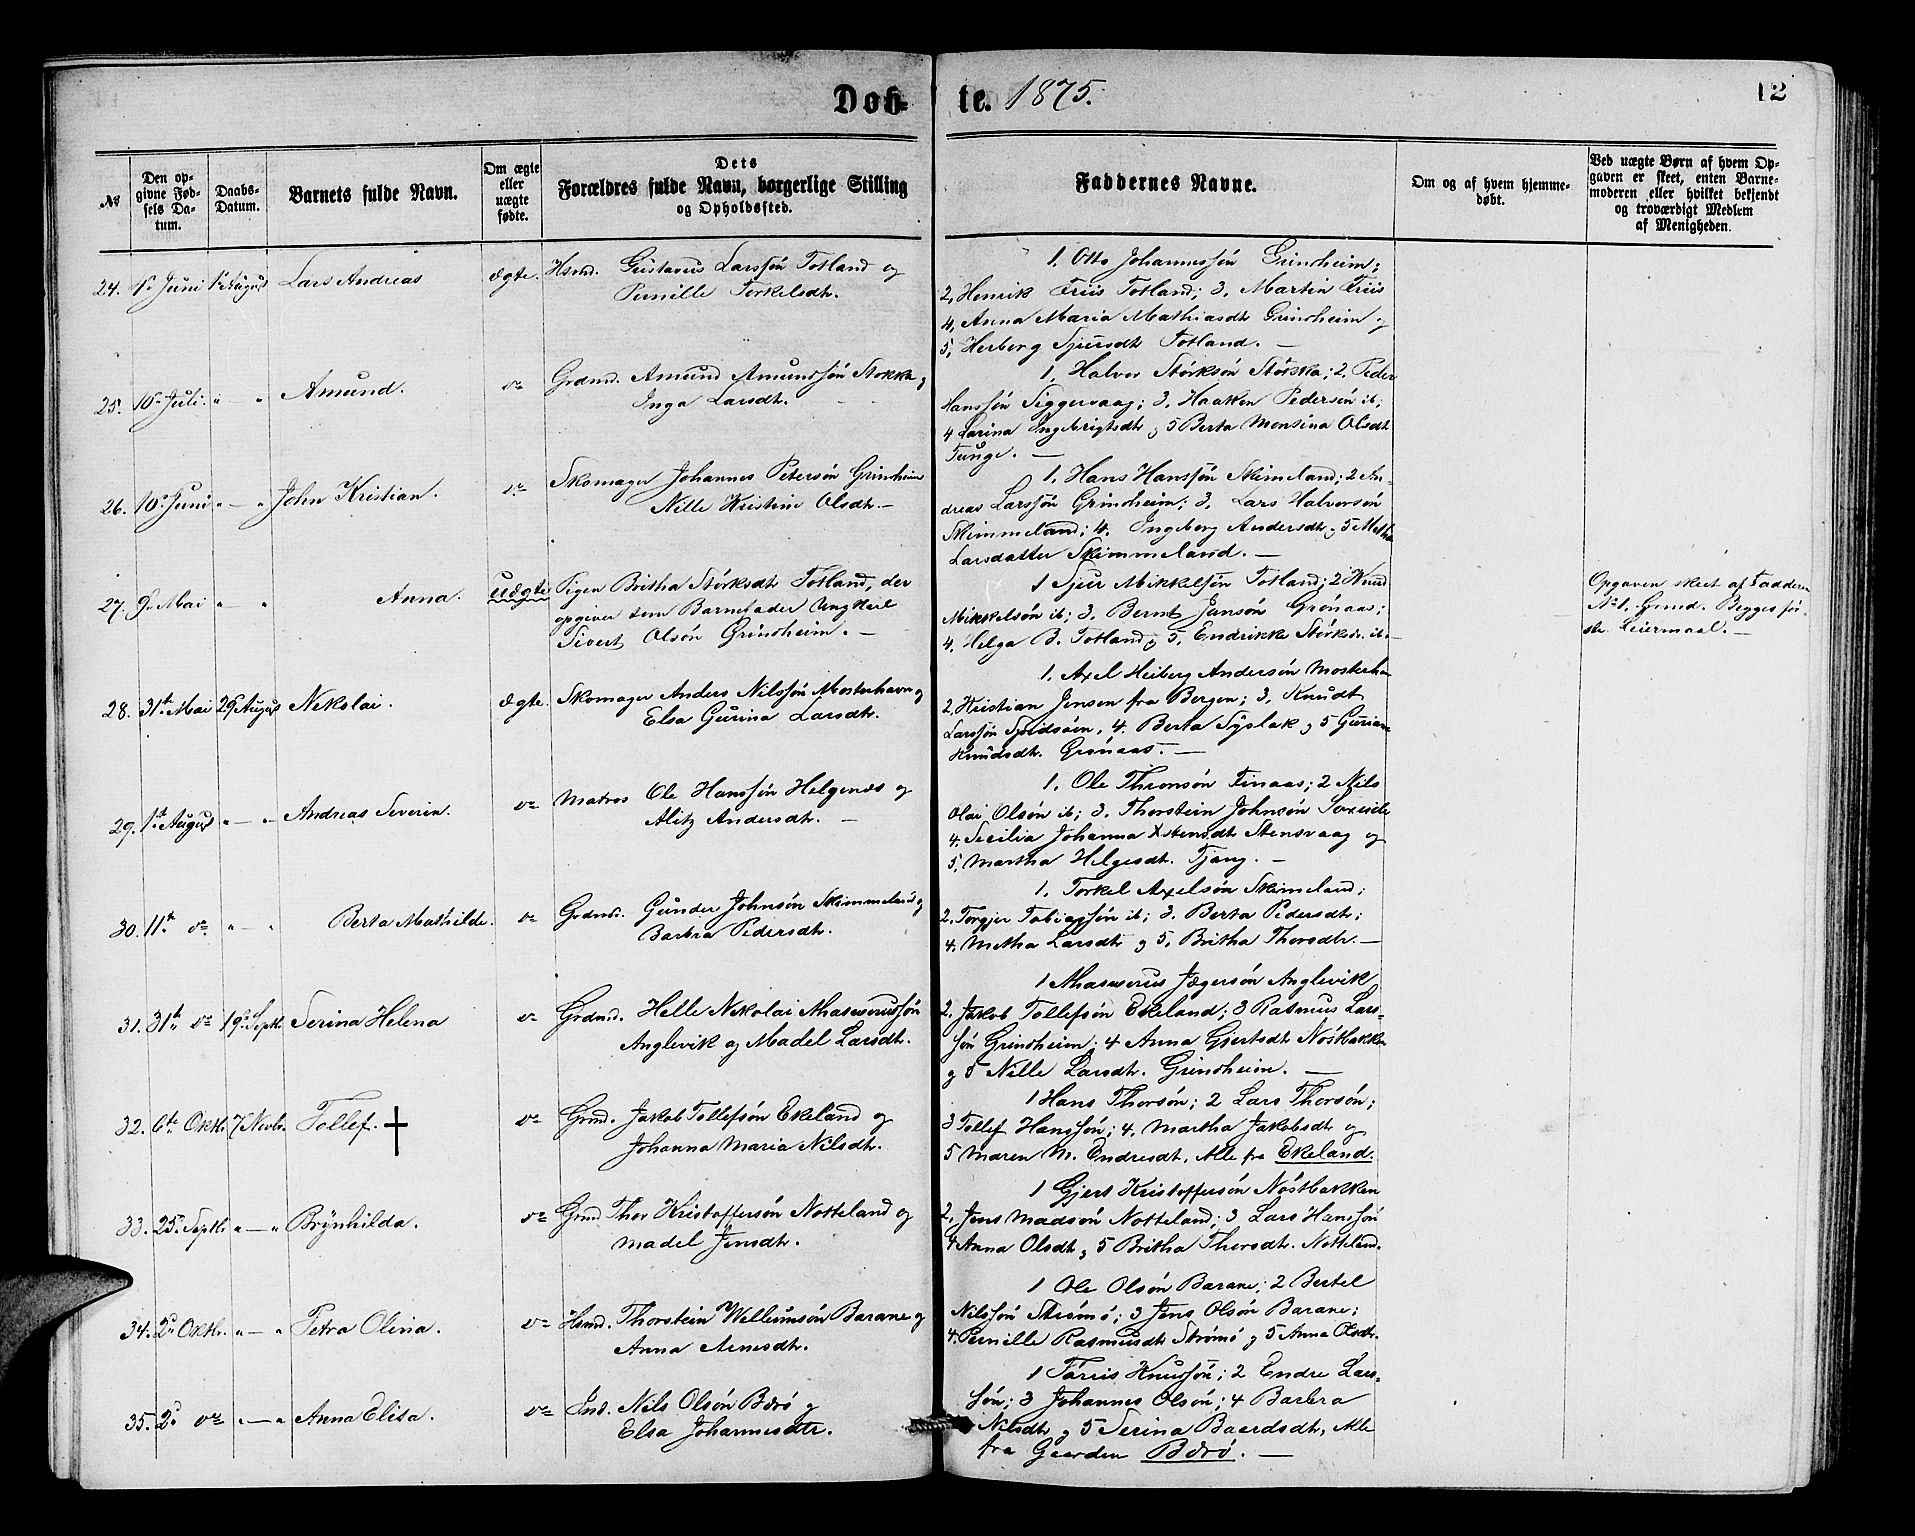 Døb-
te. 1875.
12
No
Den op-
givne Fød-
sels Da-
tum.
Daabs-
Datum.
Barnets fulde Navn.
Om ægte
eller
uægte
fødte.
Dets
Forældres fulde Navn, borgerlige Stilling
og Opholdssted.
Faddernes Navne.
Om og af hvem hjemme-
døbt.
Ved uægte Børn af hvem Op-
gaven er skeet, enten Barne-
moderen eller hvilket bekjendt
og troværdigt Medlem
af Menigheden.
24. 1ste Juni 1ste August Lars Andreas ægte. Hsmd. Gustavus Larssøn Totland og
Pernille Torkelsdtr.
1, Otto Johannessøn Grindheim;
2, Henrik Friis Totland; 3, Martin Friis
4, Anna Maria Mathiasdtr Grindheim og
5, Herborg Sjursdtr Totland. —
25. 10de Juli. " — " Amund. do Grdmd. Amund Amundssøn Stokka og
Inga Larsdtr.
1, Halvor Størksøn Størska; 2. Peder
Hanssøn Siggervaag; 3, Haaken Pedersøn ib;
4 Larina Ingebrigtsdtr og 5 Berta Monsina Olsdtr
Tunge. —
26. 10de Juni " — " John Kristian. do Skomager Johannes Petersøn Grindheim
Nille Kristine Olsdtr. —
1, Hans Hanssøn Skimeland; 2 An-
dreas Larssøn Grindheim; 3, Lars Halvorsøn
Skimmeland; 4. Ingeborg Andersdtr og 5 Metha
Larsdatter Skimmeland. —
27. 9de Mai " — " Anna. uægte Pigen Britha Størksdtr Totland, der
opgiver som Barnefader Ungkarl
Sivert Olsøn Grindheim. —
1 Sjur Mikkelsøn Totland; 2 Knud
Mikkelsøn ib; 3. Bernt Jansøn Grønaas;
4. Helga B. Totland og 5, Endrikke Størksdr. ib. —
Opgaven skeet af Fadderen
No 1. Grmd. Begges før-
ste Leiermaal. —
28. 31te Mai 29 August Nikolai. ægte. Skomager Anders Nilssøn Mosterhavn og
Elsa Gurina Larsdtr.
1, Axel Heiberg Andersøn Mosterhavn
2, Kristian Jensen fra Bergen; 3, Knudt
Larssøn Spidsøen, 4. Berta Syslak og 5 Guriane
Knudsdtr. Grønaas. —
29. 1ste August " — " Andreas Severin. do Matros Ole Hanssøn Helgenæs og
Alitz Andersdtr. —
1. Ole Thronsøn Finaas; 2 Nils
Olai Olsøn ib; 3. Thorstein Johnsøn Sexeide
4. Secilia Johanna Xstensdtr Stensvaag og
5, Martha Helgesdtr. Tjong. —
30. 11te do " — " Berta Mathilde. do Grdmd. Gunder Johnsøn Skimmeland og
Barbra Pedersdtr.
1. Torkel Axelsøn Skimeland;
2, Torgjer Tobiassøn ib; 3. Berta Pedersdtr;
4. Metha Larsdtr og 5. Britha Thorsdtr. —
31. 31te do 19de Septbr. Serina Helena do Grdmd. Helle Nikolai Ahasuerussøn
Anglevik og Madel Larsdtr.
1 Ahasuerus Jægersøn Anglevik
2. Jakob Tollefsøn Ekeland; 3 Rasmus Lars-
søn Grindheim; 4 Anna Gjertsdtr Nøstbakken
og 5 Nille Larsdtr. Grindheim. —
32. 6te Oktbr. 7 Novbr. Tollef. † do Grmd. Jakob Tollefsøn Ekeland og
Johanna Maria Nilsdtr.
1 Hans Thorsøn; 2 Lars Thorsøn;
3 Tollef Hanssøn; 4. Martha Jakobsdtr og
5 Maren M. Endresdtr. Alle fra Ekeland.
33. 25de Septbr. " — " Brynhilda. do Grmd. Thor Kristoffersøn Notteland og
Madel Jensdtr.
1 Gjert Kristoffersøn Nøstbakken
2. Jens Madsøn Notteland; 3 Lars Hanssøn
4 Anna Olsdtr og 5 Britha Thorsdtr. Notteland.
34. 2den Oktbr. " — " Petra Olina. do Hsmd. Thorstein Wellumsøn Barane og
Anna Arnesdtr.
1 Ole Olsøn Barane; 2 Bertel
Nilssøn Strømø; 3 Jens Olsøn Barane;
4. Pernille Rasmusdtr Strømø og 5 Anna Olsdtr.
35. 2den do " — " Anna Elisa. do Ind. Nils Olsøn Børø og
Elsa Johannesdtr.
1 Tørris Knudsøn; 2 Endre Lars-
søn; 3 Johannes Olsøn; 4 Barbra
Nilsdtr og 5 Serina Baardsdtr, Alle
fra Gaarden Børø. —